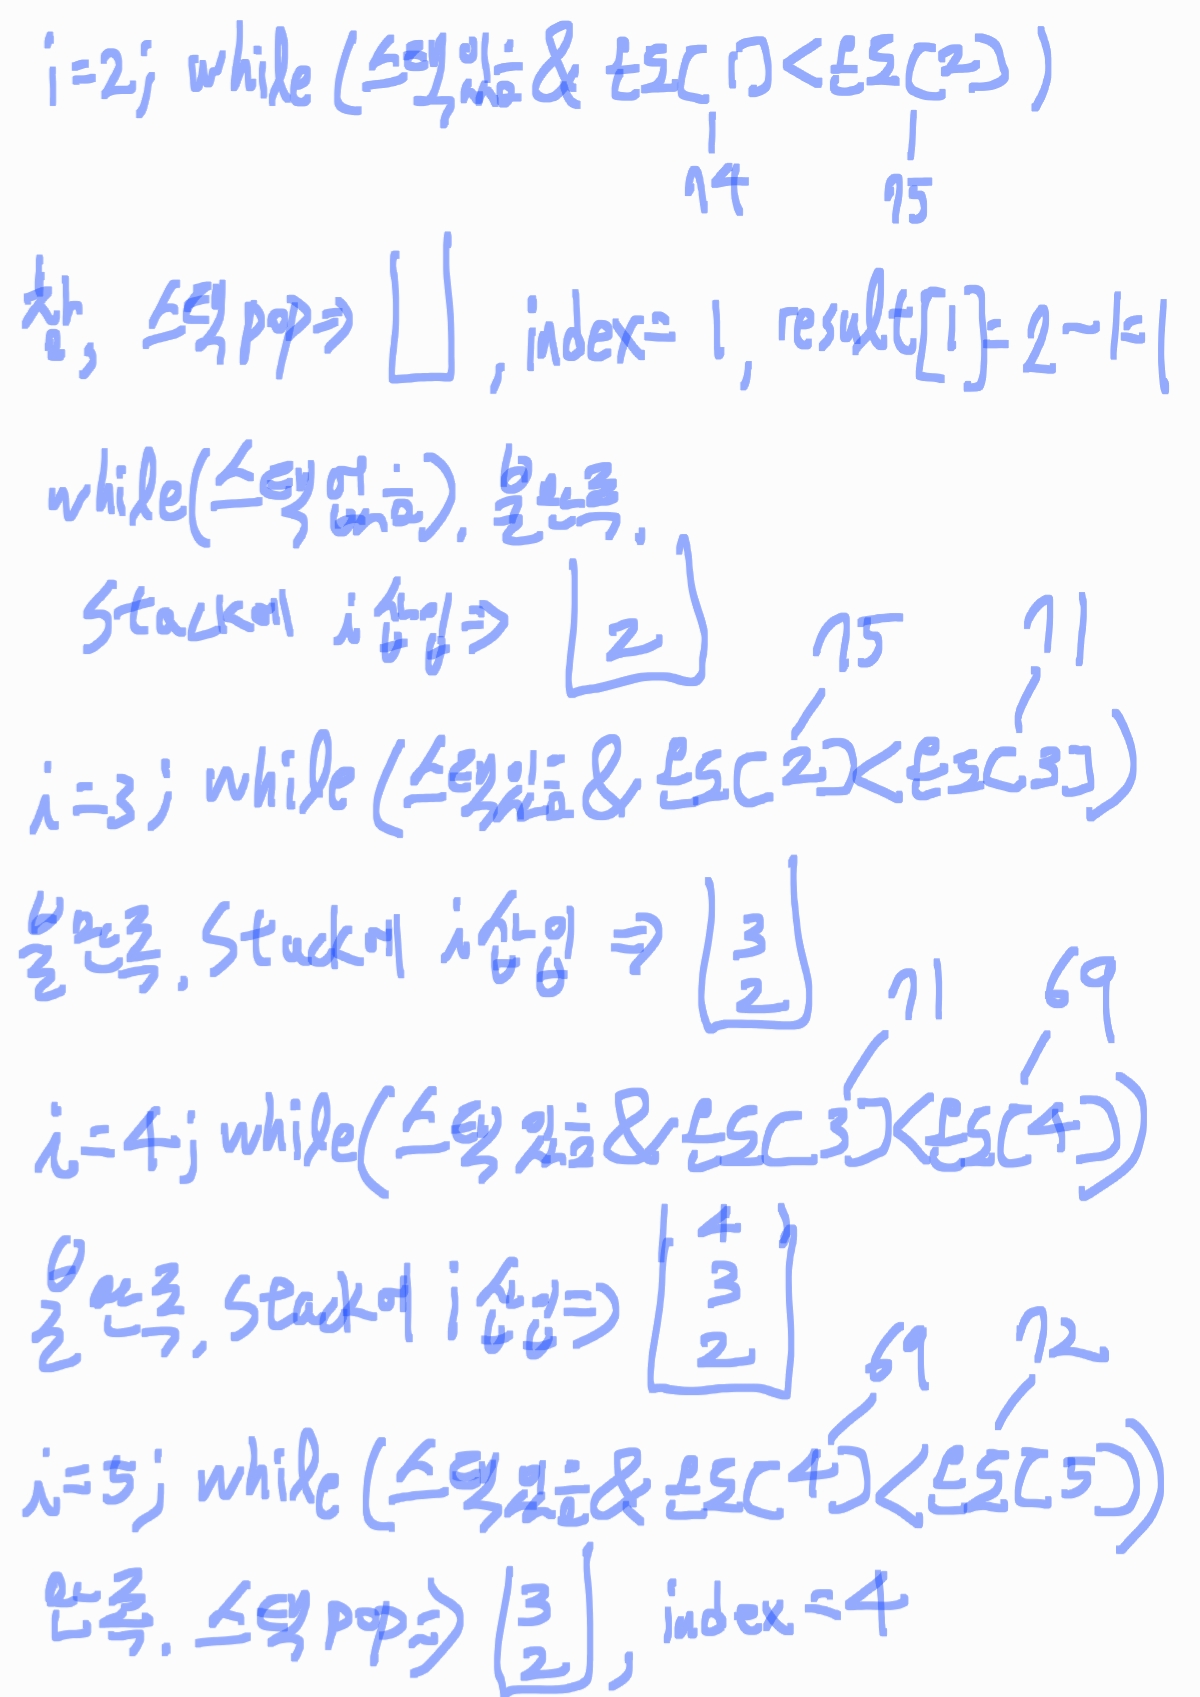 i=2; while (스택있음 & ts[1]<ts[2])
74 75
참, 스택pop⇒ , index=1, result[1]=2-1=1
while(스택있음). 불만족.
stack에 i삽입⇒ 2
75 71
i=3; while (스택있음 & ts[2]<ts[3])
불만족. stack에 i삽입 ⇒ 3
2
71 69
i=4; while(스택있음 & ts[3]<ts[4])
4
불만족. stack에 i삽입⇒ 3
2
69 72
i=5; while (스택있음 & ts[4]<ts[5])
만족. 스택pop⇒ 3 , index=4
2